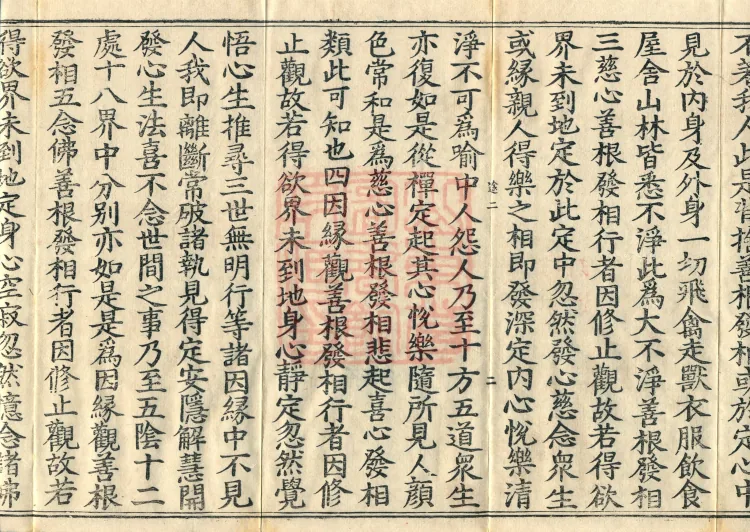 不善我人此是背捨善根發相或於定心中
見於內身及外身一切飛禽走獸衣服飲食
屋舍山林皆悉不淨此為大不淨善根發相
三慈心善根發相行者因修止觀故若得欲
界未到地定於此定中忽然發心慈念衆生
或緣親人得樂之相即發深定內心悅樂清
途二 二
淨不可爲喻中人怨人乃至十方五道衆生
亦復如是從禪定起其心悅樂隨所見人顏
色常和是爲慈心善根發相悲起喜心發相
類此可知也四因緣觀善根發相行者因修
止觀故若得欲界未到地身心靜定忽然覺
悟心生推尋三世無明行等諸因緣中不見
人我即離斷常破諸執見得定安隱解慧開
發心生法喜不念世間之事乃至五陰十二
處十八界中分別亦如是是爲因緣觀善根
發相五念佛善根發相行者因修止觀故若
得欲界未到地定身心空寂忽然憶念諸佛